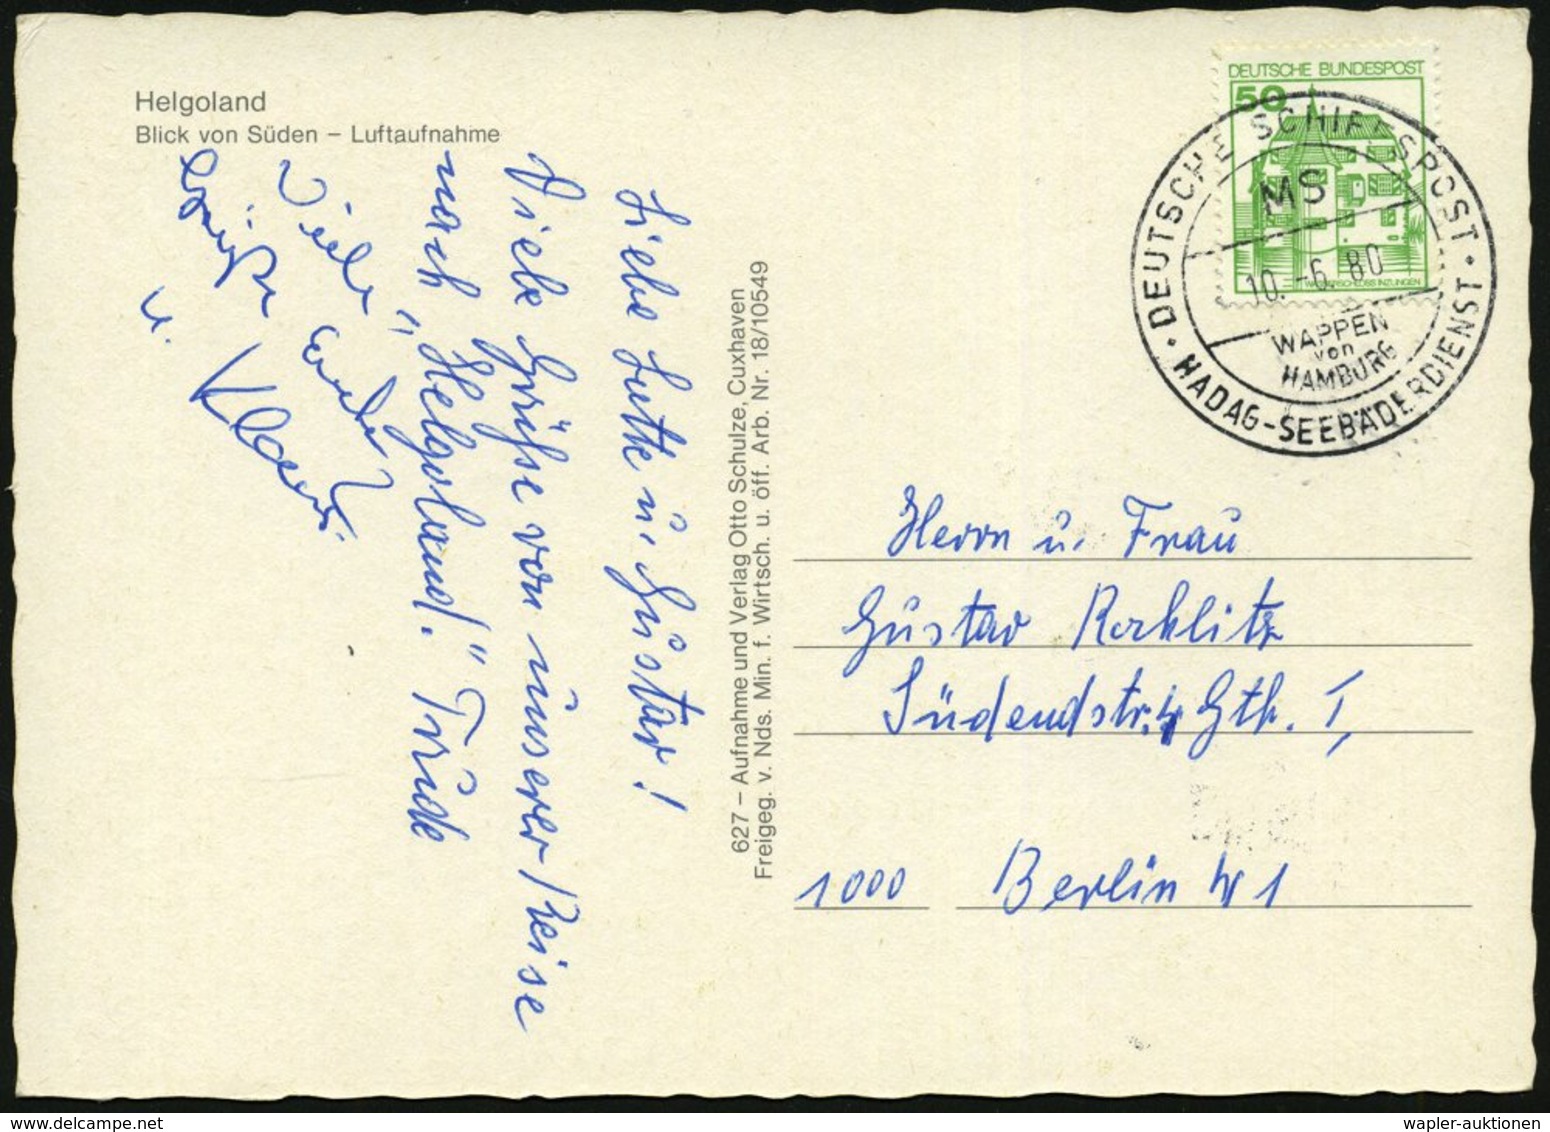 Helgoland
Blick von Süden – Luftaufnahme
Liebe Lotte u. Gustav!
Viele Grüße von unserer Reise
nach „Helgoland." Trude
Viele
Grüße
u. Klaus.
627 – Aufnahme und Verlag Otto Schulze, Cuxhaven
Freigeg. v. Nds. Min. f. Wirtsch. u. öff. Arb. Nr. 18/10549
DEUTSCHE BUNDESPOST
50
WASSERSCHLOSS INZLINGEN
DEUTSCHE SCHIFFSPOST
MS
10.-6.80
WAPPEN
von
HAMBURG
HADAG-SEEBÄDERDIENST
Herrn u. Frau
Gustav Rochlitz
Südendstr. Gth. I,
1000 Berlin 41
wapler-auktionen